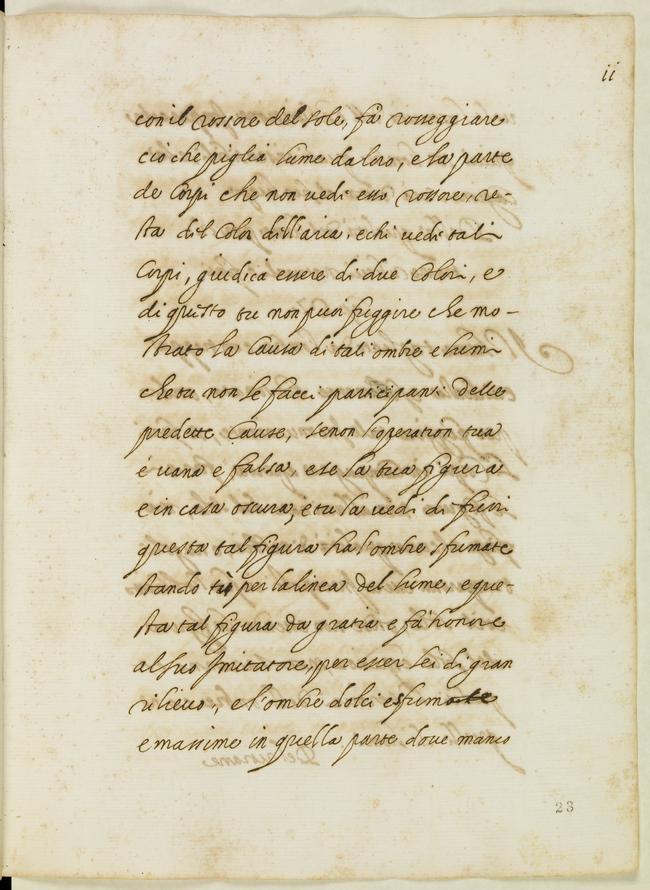 ii
con il rossore del sole, fà rosseggiare
ciò che piglia lume da loro, e la parte
de Corpi che non vedi esso rossore, re-
sta dil Color dell'aria, e chi vede tali
Corpi, giudica essere di due Colori, e
di questo tu non puoi fuggire che mo-
strato la Causa di tali ombre e lumi
che tu non le facci participanti delle
predette Cause, se non l'operation tua
è vana e falsa, e se la tua figura
e in casa oscura, e tu la vedi di fuori
questa tal figura ha l'ombre sfumate
stando tù per la linea del lume, e que-
sta tal figura da gratia e fà honore
al suo Imitatore, per esser lei di gran
rilievo, e l'ombre dolci e sfumate
e massime in quella parte dove manco
23